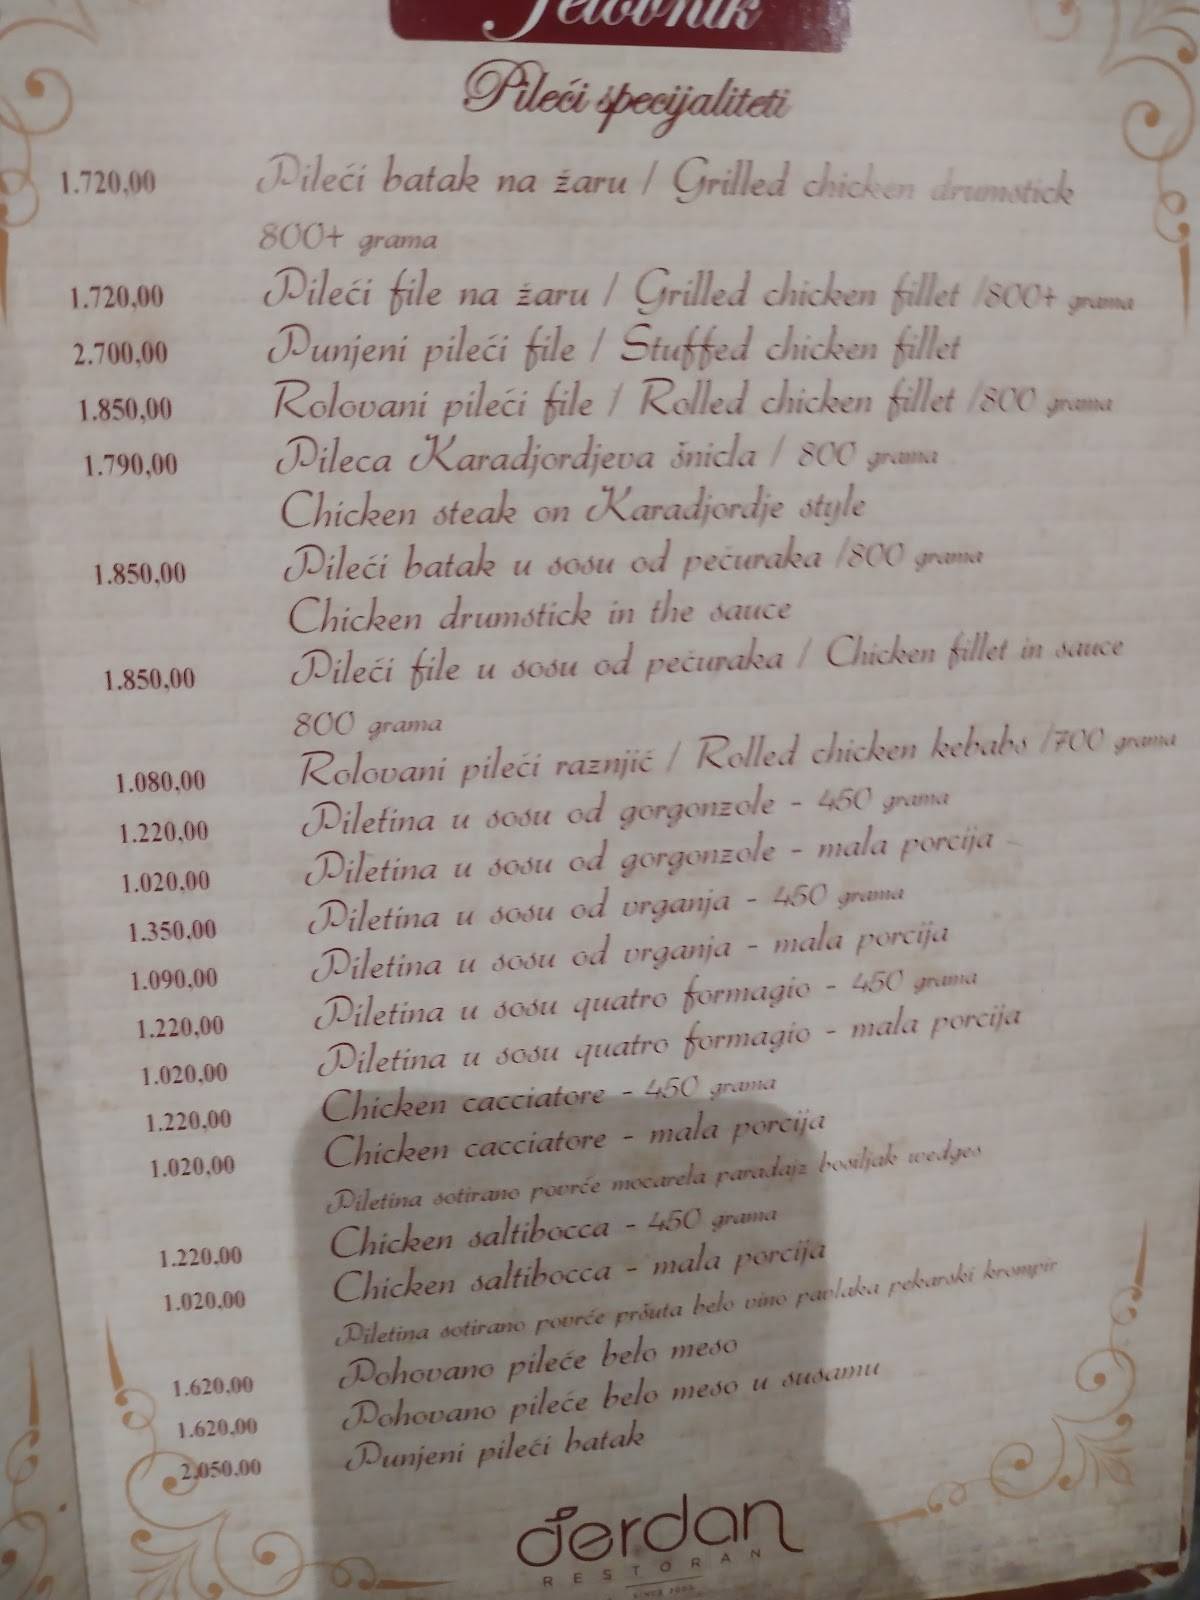 Jelovnik
Pileći specijaliteti
1.720,00 Pileći batak na žaru / Grilled chicken drumstick
800+ grama
1.720,00 Pileći file na žaru / Grilled chicken fillet /800+ grama
2.700,00 Punjeni pileći file / Stuffed chicken fillet
1.850,00 Rolovani pileći file / Rolled chicken fillet /800 grama
1.790,00 Pileca Karadjordjeva šnicla / 800 grama
Chicken steak on Karadjordje style
1.850,00 Pileći batak u sosu od pečuraka /800 grama
Chicken drumstick in the sauce
1.850,00 Pileći file u sosu od pečuraka / Chicken fillet in sauce
800 grama
1.080,00 Rolovani pileći raznjić / Rolled chicken kebabs /700 grama
1.220,00 Piletina u sosu od gorgonzole - 450 grama
1.020,00 Piletina u sosu od gorgonzole - mala porcija
1.350,00 Piletina u sosu od vrganja - 450 grama
1.090,00 Piletina u sosu od vrganja - mala porcija
1.220,00 Piletina u sosu quatro formagio - 450 grama
1.020,00 Piletina u sosu quatro formagio - mala porcija
1.220,00 Chicken cacciatore - 450 grama
1.020,00 Chicken cacciatore - mala porcija
Piletina sotirano povrće mocarela paradajz bosiljak wedges
1.220,00 Chicken saltibocca - 450 grama
1.020,00 Chicken saltibocca - mala porcija
Piletina sotirano povrće pršuta belo vino pavlaka pekarski krompir
1.620,00 Pohovano pileće belo meso
1.620,00 Pohovano pileće belo meso u susamu
2.050,00 Punjeni pileći batak
đerdan
RESTORAN